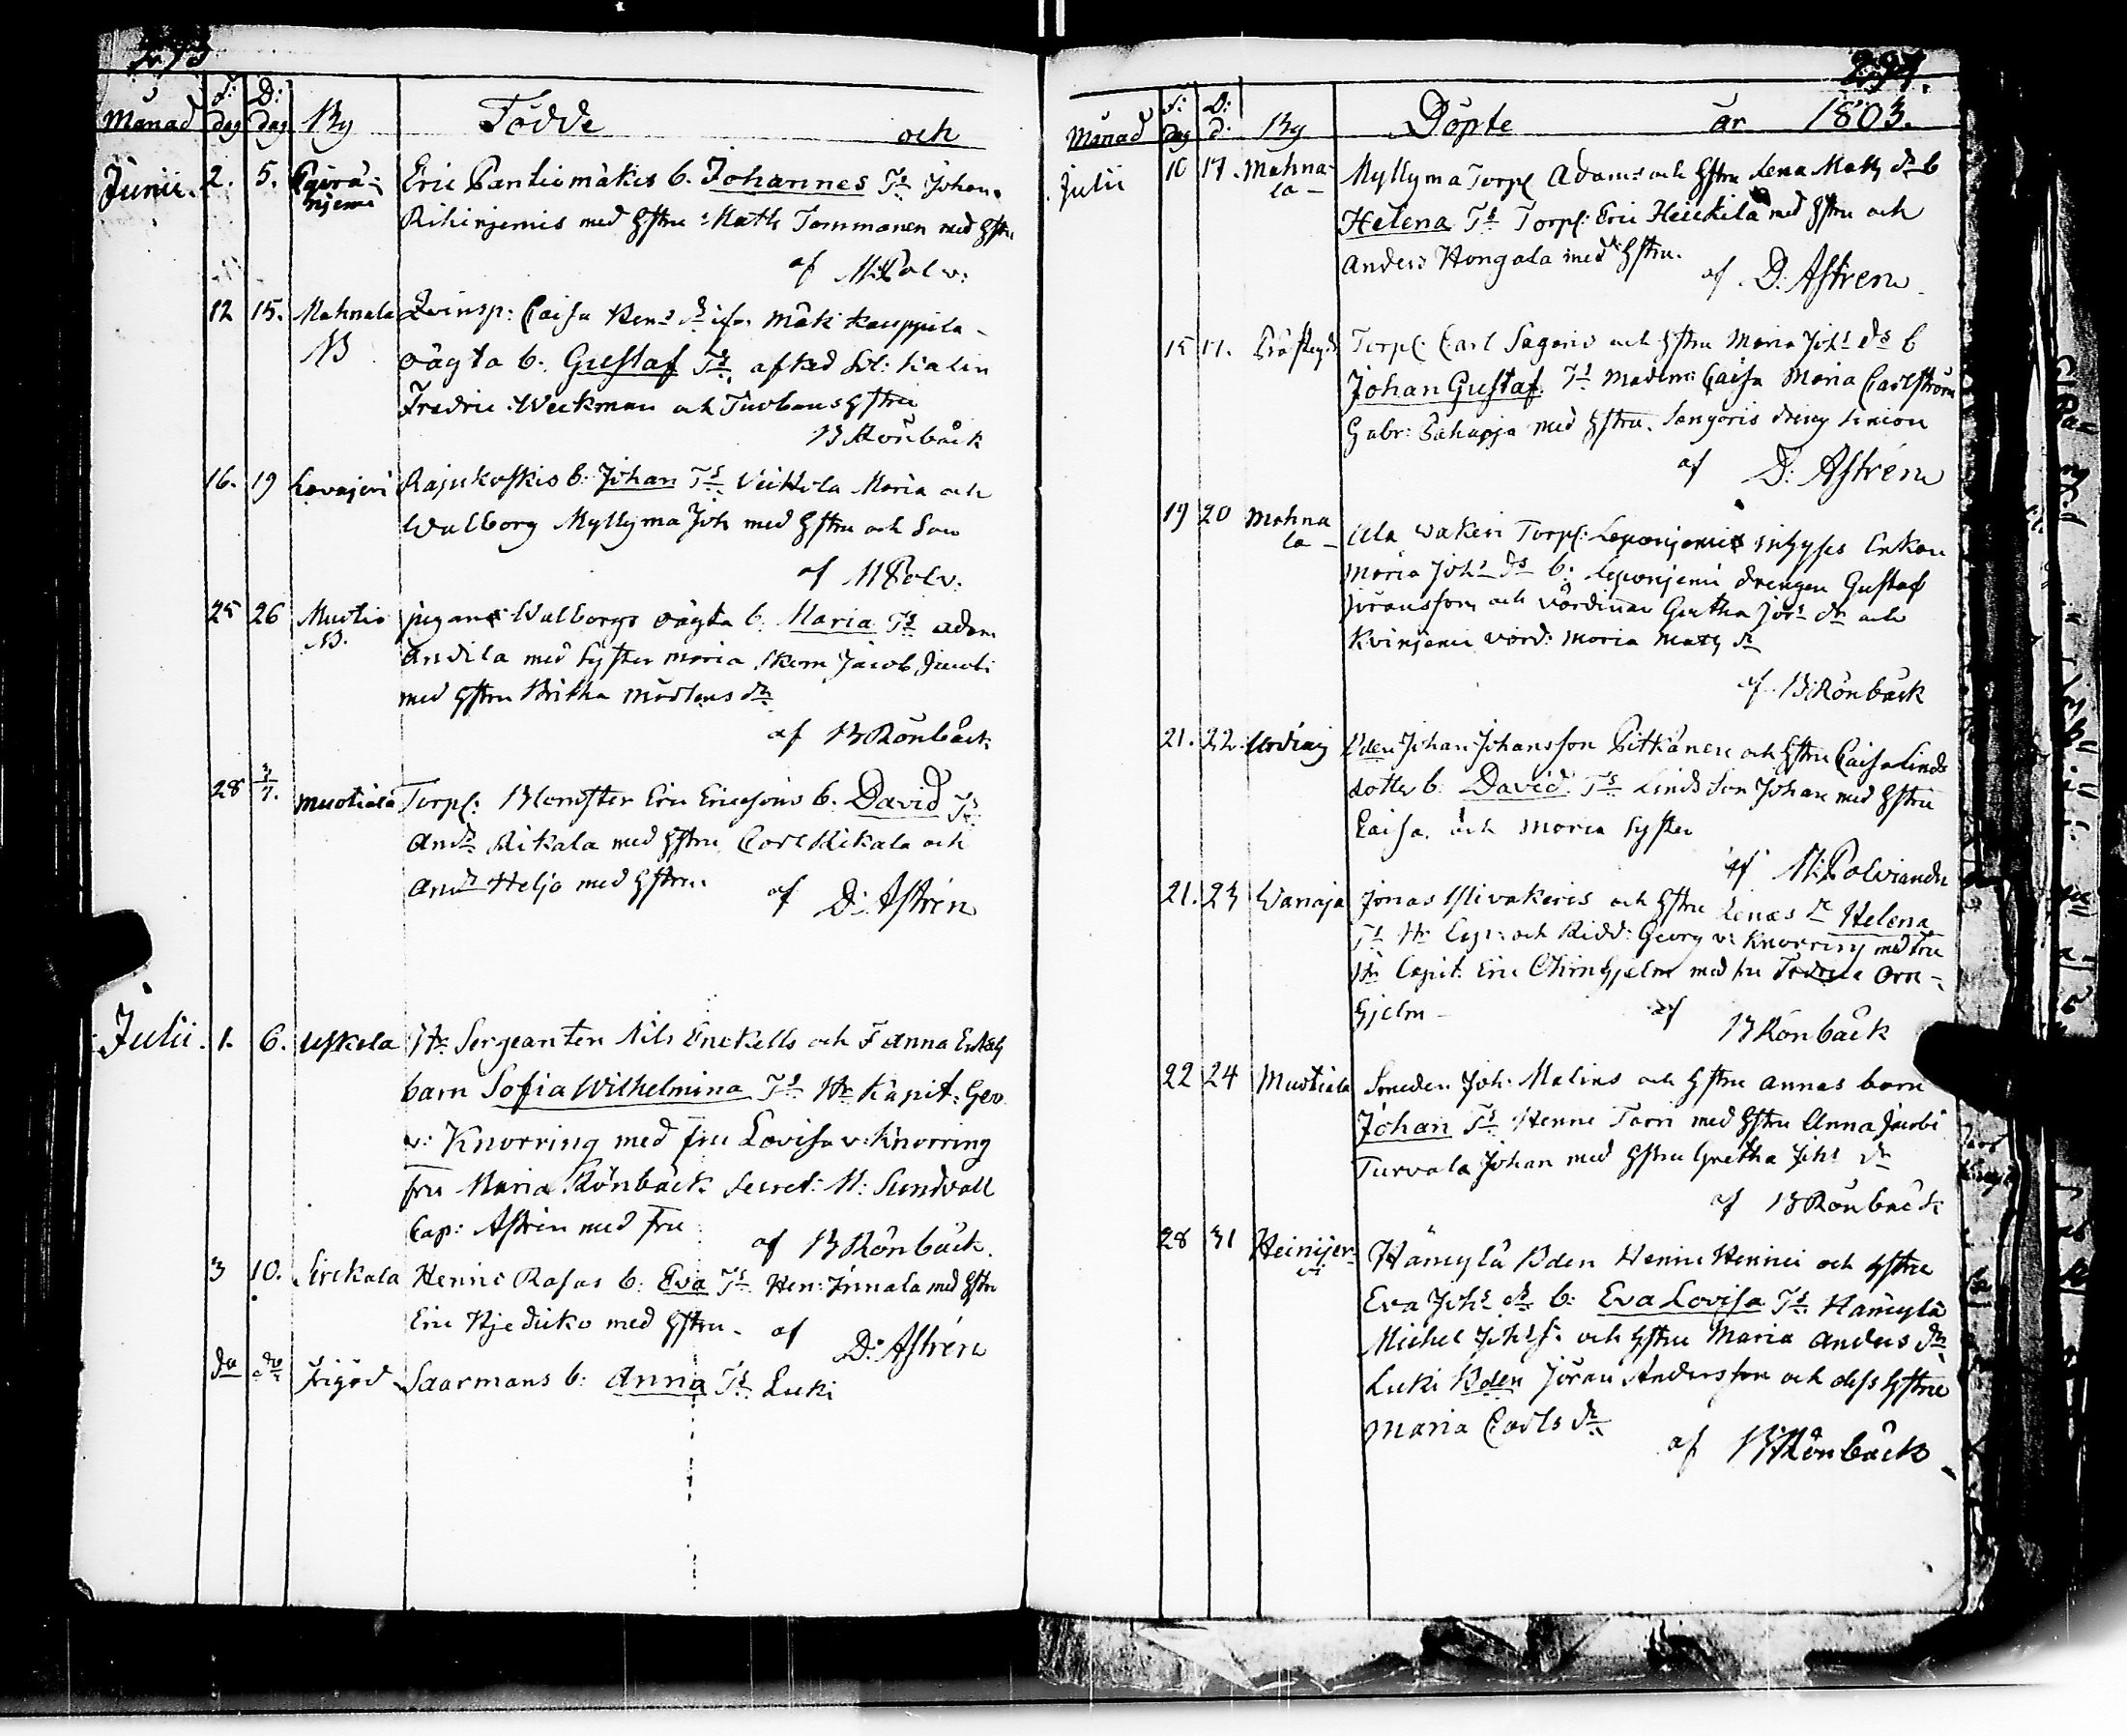 293
Månad f: dag D: dag By Födde och
Junii. 2. 5. Eric Pantiomäkis b. Johannes Ts Johan.
njemi Rihinjemis med Hstru Math Tommonen med Hstru
af M Polv:
12 15. Mahnala Qvinsp: Caisa Hens dr ifr. Mäki Kauppila
NB oägta b. Gustaf Ts. afsked Sol: Kalin
Fredric Weckman och Hstru
B Rönbäck
16. 19 Lavajervi Rajukoskis b. Johan Ts Veittola Maria och
Walborg Myllyma Joh med Hstru och Son
af M Polv.
25 26 Mustio pigans Walborgs oägta b. Maria Ts Adam
NB. Andila med Syster Maria Skom Jacob Jacobi
med Hstru Britha Mårtens dr
af B Rönbäck
28 3/7. Mustiala Torp: Eric Ericsons b. David Ts
Andr Rikala med Hstru Carl Rikala och
Andr Heljo med Hstru. af D: Astrén
Julii. 1. 6. Uskela Hr Sergeanten Nils Enckells och F Anna
barn Sofia Wilhelmina Ts Hr Kapit: Geo
v: Knorring med fru Lovisa v: Knorring
fru Maria Rönbäck Secret: M: Sundvall
Cap: Astrén med fru af B Rönbäck.
3 10. Sirckala Henric Rasas b: Eva Ts Hen: Innala med Hstru
Eric med Hstru. af D: Astrén
do do Saarmans b: Anna Ts Luki
297.
Månad f: dag D: d. By Döpte år 1803.
Julii 10 17. Mahna- Myllyma Torp Adams och Hstru Lena Mats dr b
la Helena Ts Torp: Eric Heickilä med Hstru och
Anders Hongola med Hstru. af D: Astren
15 17. Torp: Carl Sagoris och Hstru Maria Johs ds b
Johan Gustaf Ts Madem: Caisa Maria Carlström
Gabr: Pahapja med Hstru. Sangoris dreng Simion
af D: Astrén
19 20 Mahna Ala Wakeri Torp: Leponjemis inhyses Enkan
la Maria Johs ds b: Leponjemi drengen Gustaf
Jöransson och värdinnan Gretha Jörs dr och
Kvinjemi värd: Maria Mats dr
af B Rönbäck
21. 22 Bden Johan Johansson Pitkänen och Hstru Caisa Linds
dotter b. David Ts Linds Son Johan med Hstru
Caisa och Maria Syster
af M: Polviander
21. 23 Wanaja Jonas och Hstru Lenas dr Helena
Ts Hr Cap: och Ridd: Georg v: Knorring med fru
Hr Capit: Eric med fru Orn-
hjelm af B Rönbäck
22 24 Mustiala Smeden Joh: Malins och Hstru Annas barn
Johan Ts Henric Torri med Hstru Anna Jacobi
Turvala Johan med Hstru Gretha Johs dr
af B Rönbäck
28 31 Heinijer- Hämylä Bden Henric Henrici och Hstru
vi Eva Johs dr b: Eva Lovisa Ts Hämylä
Michel Johs s: och Hstru Maria Anders dr
Luki Bden Jöran Andersson och dess Hstru
Maria Carls dr
af B Rönbäck